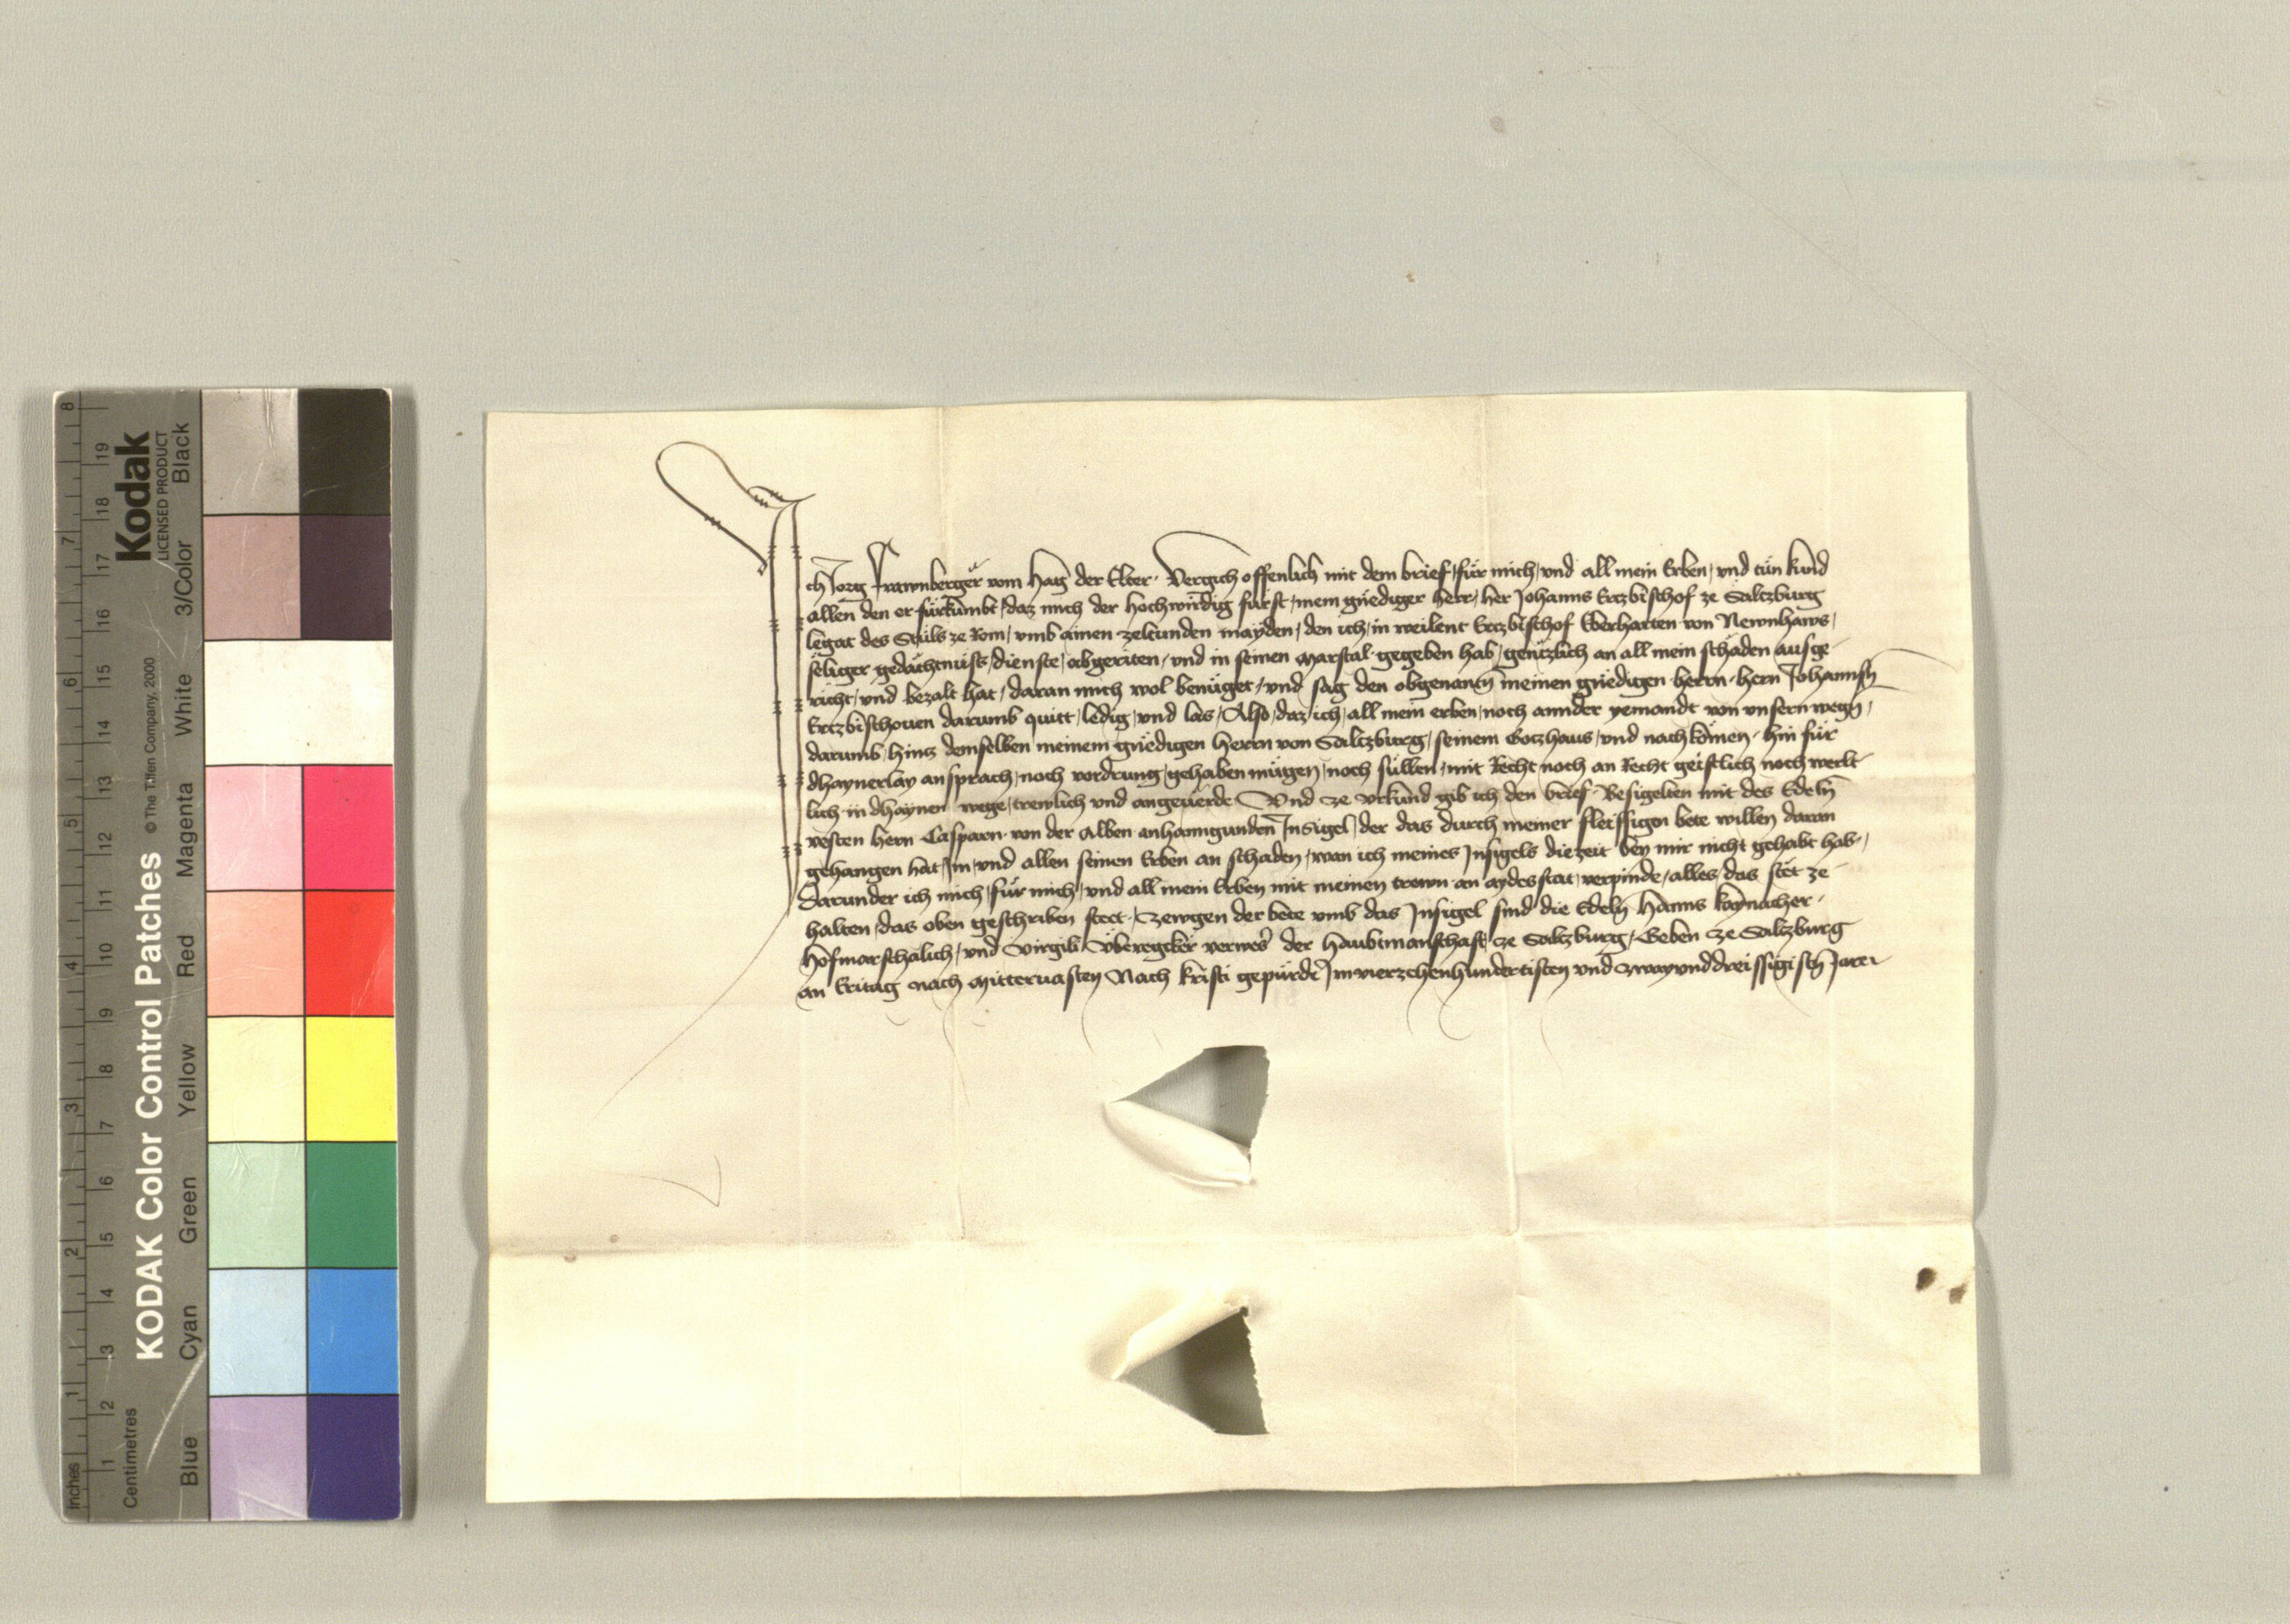 Ich Jorg Frawnberger vom Hag der Elter Vergich offenlich mit dem brief für mich vnd all mein Erben vnd tün kund
allen den er fürkumbt daz mich der hochwirdig fürst mein gnediger herr her Johanns Ertzbischof ze Saltzburg
legat des Stüls ze Rom vmb ainen zeltunden mayden den ich in weilent Ertzbischof Eberharten von Newnhaws
seliger gedächtnüss dienste abgeriten vnd in seinen Marstal gegeben hab gentzlich an all mein schäden ausge
richt vnd bezalt hat daran mich wol benüget vnd sag den obgenanten meinen gnedigen herrn hern Johannsen
Ertzbischouen darumb quitt ledig vnd las Also daz ich all mein erben noch annder yemandt von vnsern wegen
darumb hintz demselben meinem gnedigen herrn von Saltzburg seinem Gotzhaus vnd nachkömen hin für
dhaynerlay ansprach noch vordrung gehaben mügen noch süllen mit Recht noch an Recht geistlich noch werlt
lich in dhaynen wege trewlich vnd angeuerde Vnd ze vrkund gib ich den brief Besigelten mit des Edeln
vesten hern Casparn von der Alben anhanngunden Insigel der das durch meiner fleissigen bete willen daran
gehangen hat Im vnd allen seinen Erben an schaden wan ich meines Insigels die zeit bey mir nicht gehabt hab
Darunder ich mich für mich vnd all mein Erben mit meinen trewn an aydes stat verpinde alles das stet ze
halten das oben geschriben steet Zewgen der bete vmb das Insigel sind die Edeln Hanns kaynacher
hofmarschalich vnd Virgili Überegcker verweser der haubtmanschaft ze Saltzburg Geben ze Saltzburg
an Eritag nach Mitteruasten Nach kristi gepürde Im vierzehenhundertisten vnd zwayvnddreissigisten Jare
Kodak
LICENSED PRODUCT
KODAK Color Control Patches © The Tiffen Company, 2000
Blue Cyan Green Yellow Red Magenta White 3/Color Black
Inches 1 2 3 4 5 6 7 8
Centimetres 1 2 3 4 5 6 7 8 9 10 11 12 13 14 15 16 17 18 19